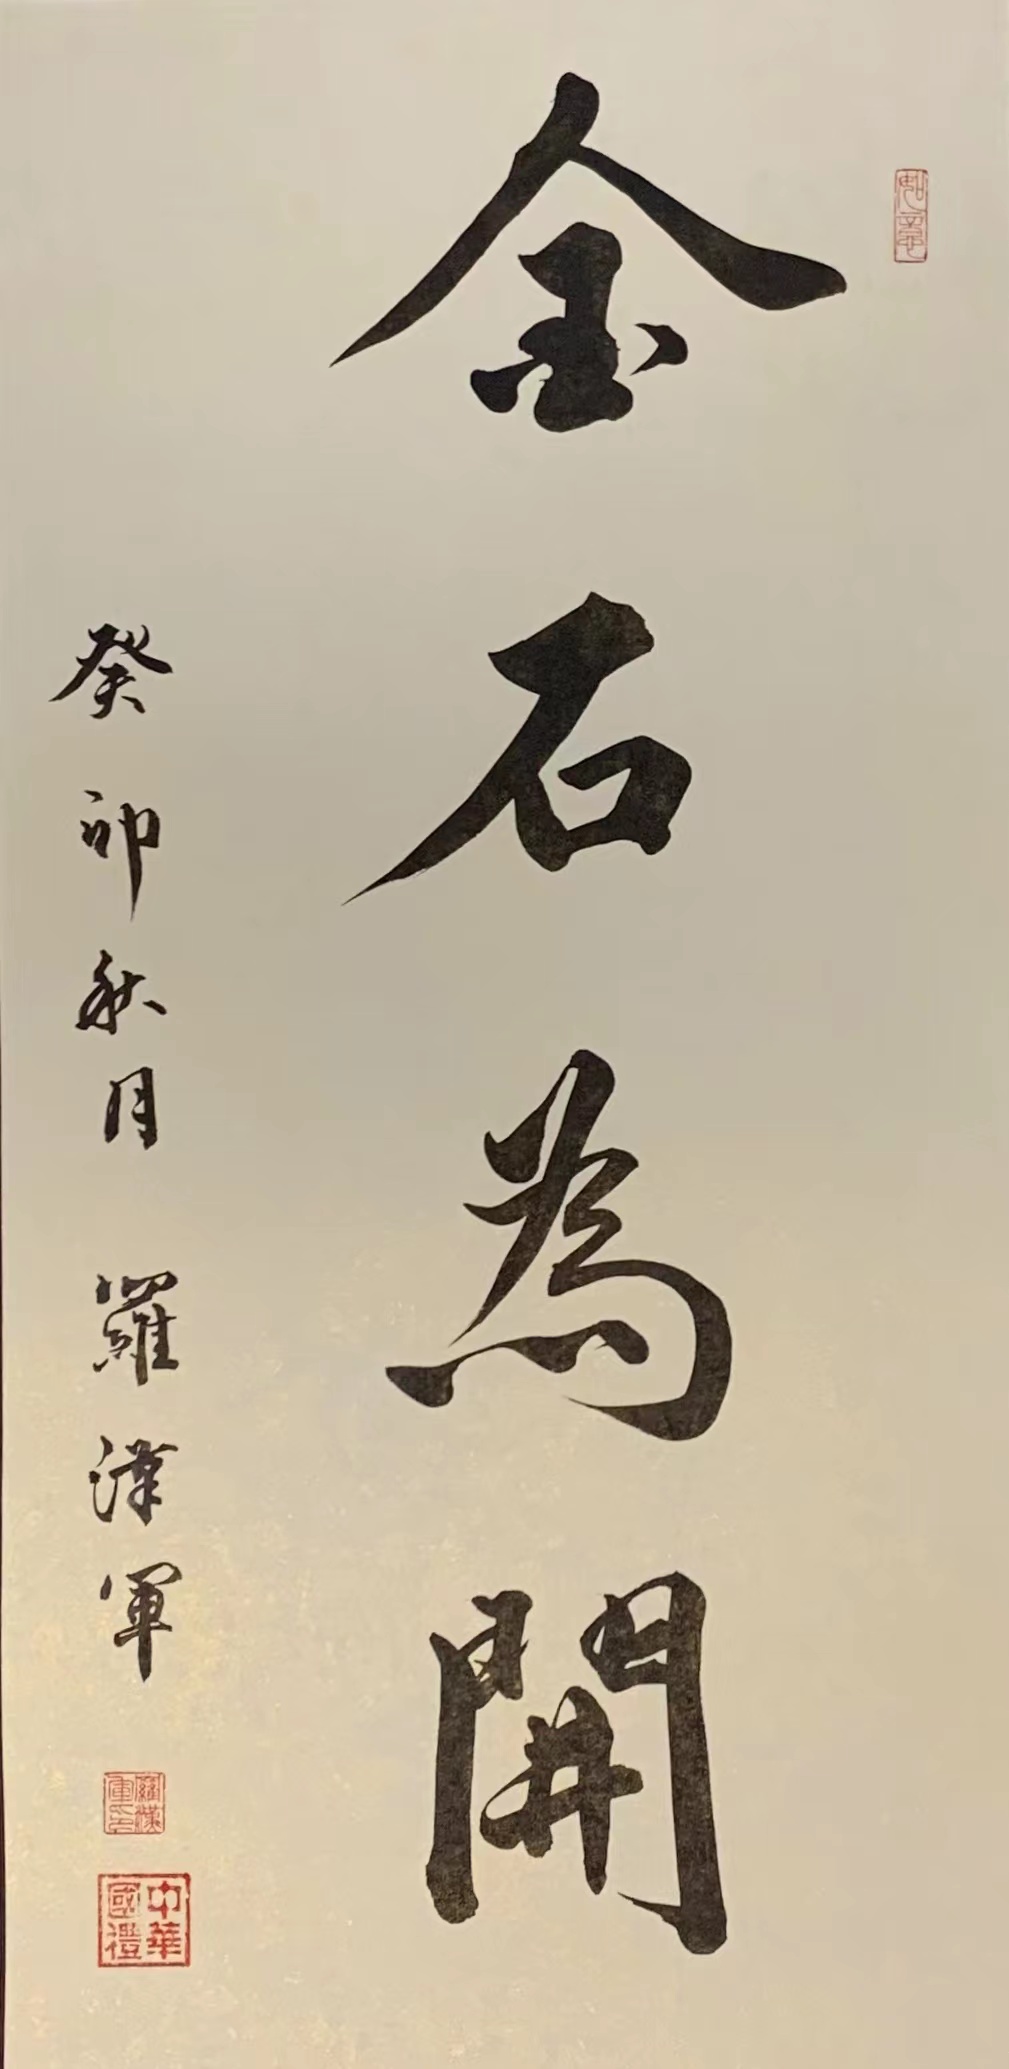 金石為開
癸卯秋月 羅漢軍
如意
羅漢軍印
中華國禮